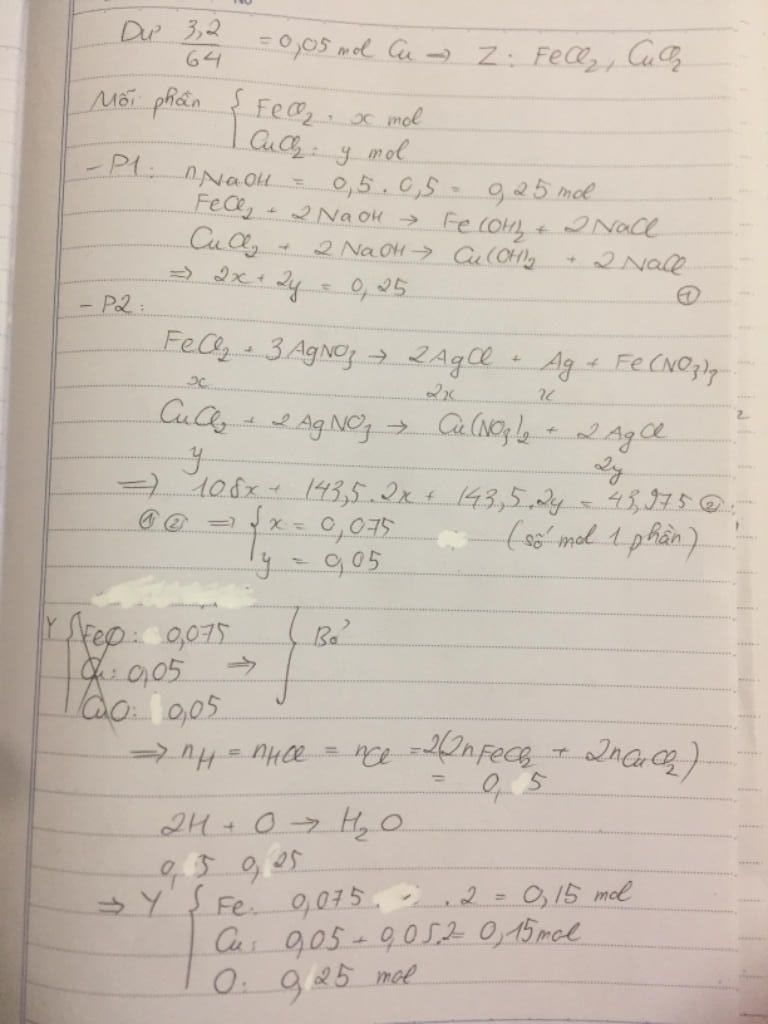 Dư 3,2/64 = 0,05 mol Cu → Z: FeCl2, CuCl2
Mỗi phần { FeCl2 : x mol
CuCl2 : y mol
- P1: nNaOH = 0,5 . 0,5 = 0,25 mol
FeCl2 + 2NaOH → Fe(OH)2 + 2NaCl
CuCl2 + 2NaOH → Cu(OH)2 + 2NaCl
⇒ 2x + 2y = 0,25 ①
- P2:
FeCl2 + 3AgNO3 → 2AgCl + Ag + Fe(NO3)3
x 2x x
CuCl2 + 2AgNO3 → Cu(NO3)2 + 2AgCl
y 2y
⇒ 108x + 143,5.2x + 143,5.2y = 43,975 ②
①② ⇒ { x = 0,075 (số mol 1 phần)
y = 0,05
Y { FeO: 0,075 } Bỏ
Cu: 0,05 ⇒
CuO: 0,05
⇒ nH = nHCl = nCl = 2(2nFeCl2 + 2nCuCl2)
= 0,5
2H + O → H2O
0,5 0,25
⇒ Y { Fe: 0,075 . 2 = 0,15 mol
Cu: 0,05 + 0,05.2 = 0,15mol
O: 0,25 mol